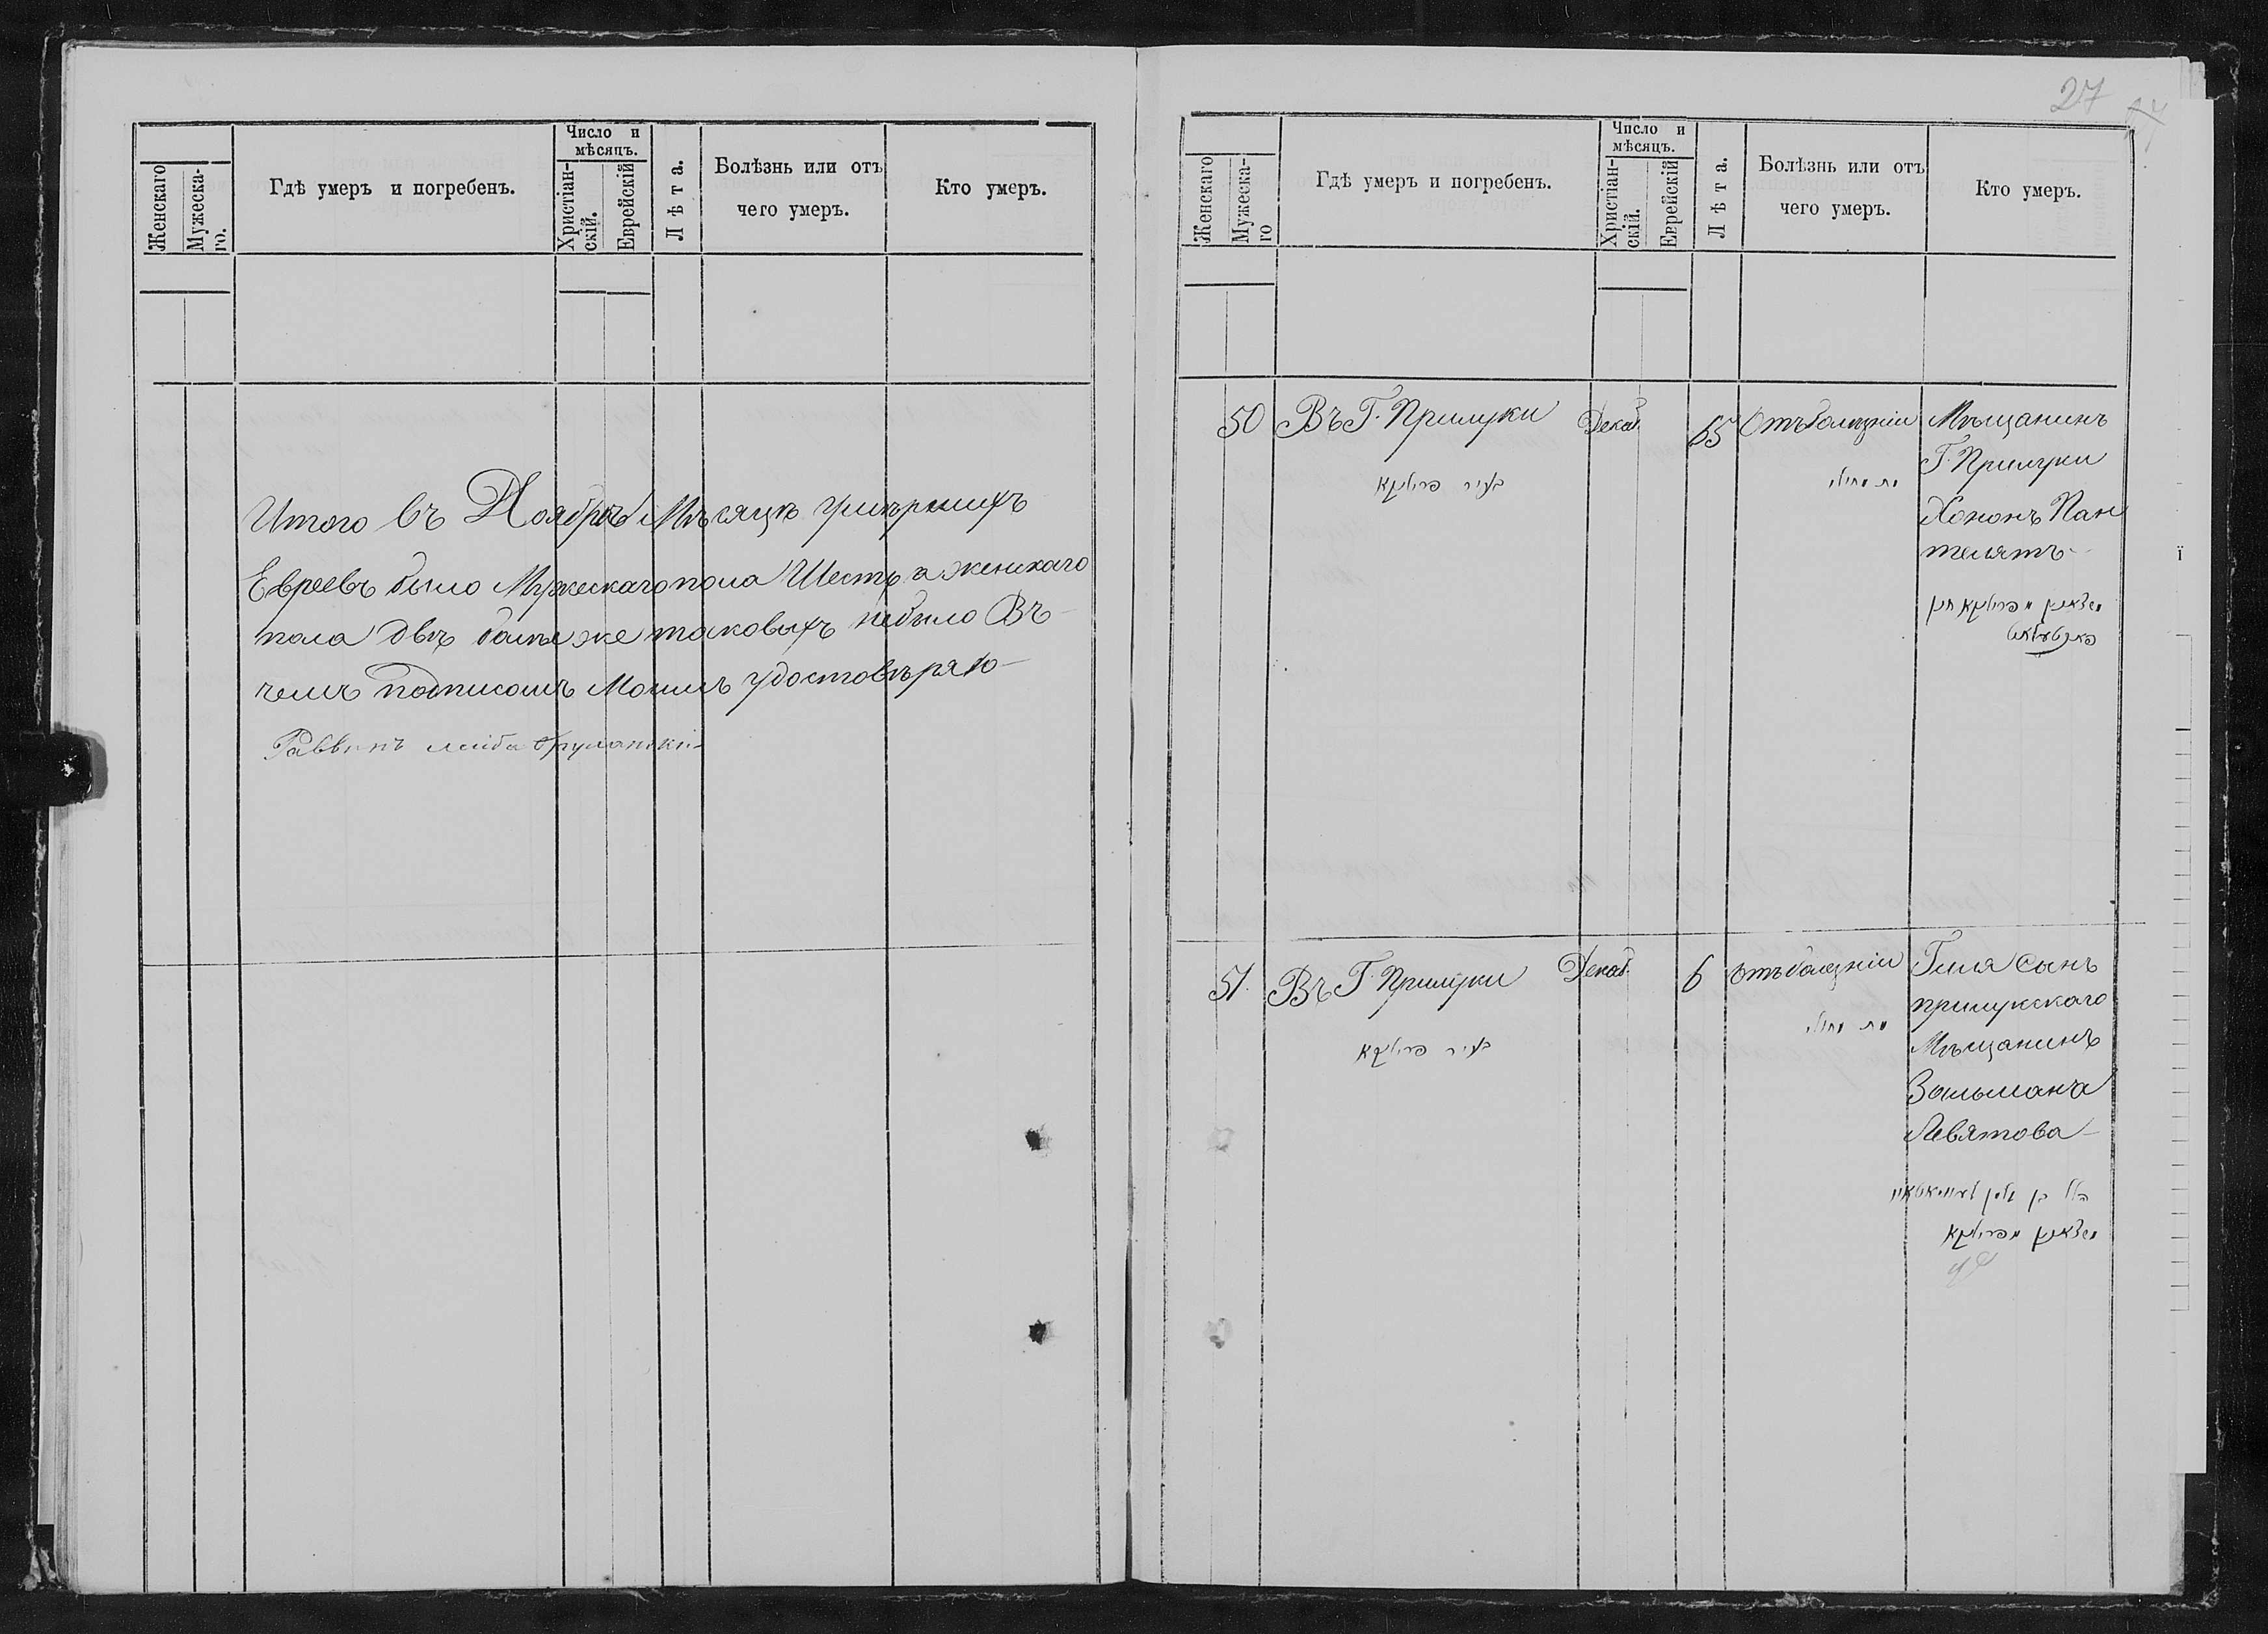 Женскаго
Мужеска-
го.
Гдѣ умеръ и погребенъ.
Число и
мѣсяцъ.
Христіан-
скій.
Еврейскій
Лѣта.
Болѣзнь или отъ
чего умеръ.
Кто умеръ.
Итого въ Ноябрѣ Мѣсяцѣ умѣршихъ
Евреевъ было Мужескаго пола Шесть а женскаго
пола двѣ болѣе же таковыхъ небыло Въ
чемъ подписомъ Моимъ удостовѣряю
Раввинъ
27
Женскаго
Мужеска-
го
Гдѣ умеръ и погребенъ.
Число и
мѣсяцъ.
Христіан-
скій.
Еврейскій
Лѣта.
Болѣзнь или отъ
чего умеръ.
Кто умеръ.
50
Въ Г. Прилуки
בעיר פרילוקא
Декаб.
65
Отъ болѣзніи
Мѣщанинъ
Г. Прилуки
Хононъ Пан
телятъ
51.
Въ Г. Прилуки
בעיר פרילוקא
Декаб.
6
отъ болѣзніи
Гиля сынъ
прилукскаго
Мѣщанинъ
Зальмана
Левятова